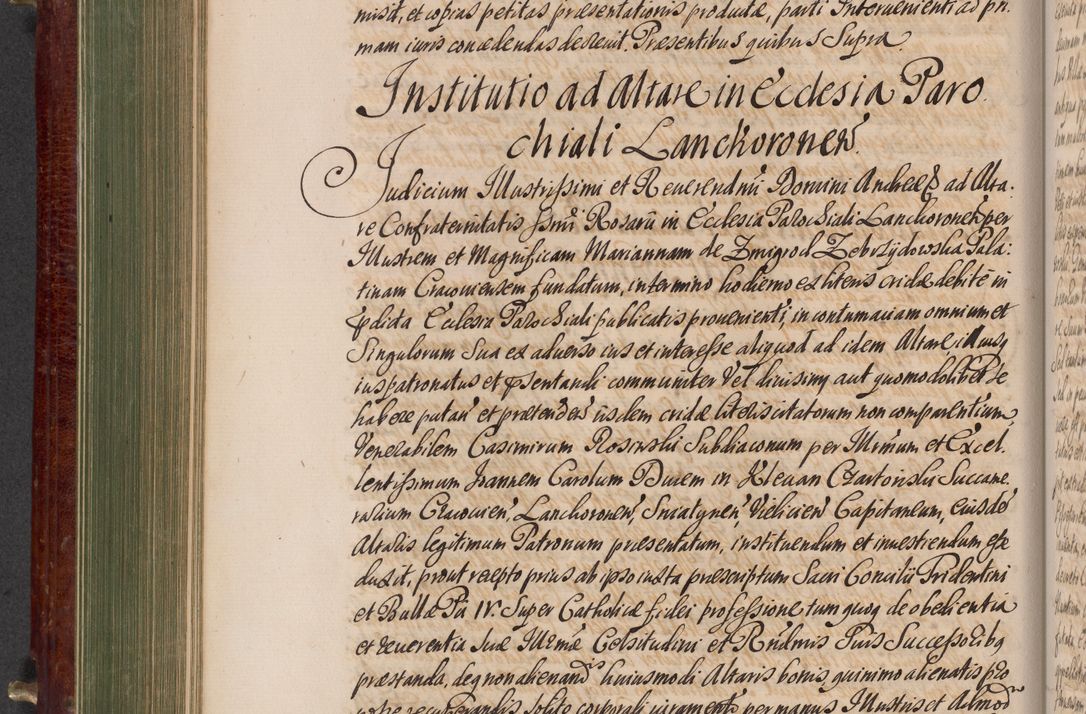 misit, et copias petitas præsentationis productæ, parti Intervenienti ad pri
mam iuris concedendas decreuit. Præsentibus quibus Supra.
Institutio ad Altare in Ecclesia Paro
chiali Lanckoronen̄.
Judicium Illustrissimi et Reuerendmi Domini Andreæ ad Alta:
re Confraternitatis ssmi Rosarii in Ecclesia Parochiali Lanckoronen̄ per
Illustrem et Magnificam Mariannam de Zmigrod Zebrzydowska Pala:
tinam Cracouiensem fundatum, in termino hodierno ex literis cridæ debite in
pdicta Ecclesia Parochiali publicatis prouenienti, in contumaciam omnium et
Singulorum Sua ex aduerso ius et interesse aliquod ad idem Altare
iuspatronatus et psentandi communiter Vel diuisim aut quomodolibet se
habere putan̄ et prætenden̄ iisdem cridæ literis citatorum non comparentium,
Venerabilem Casimirum Rosinski Subdiaconum per Illrmum et Excel
lentissimum Joannem Carolum Ducem in Klevan Czartoriski Succame
rarium Cracouien̄, Lanckoronen̄, Sniatynen̄, Vielicien̄ Capitaneum, eiusdē
Altaris legitimum Patronum præsentatum, instituendum et inuestiendum esse
duxit, prout recepto prius ab ipso iuxta præscriptum Sacri Concilii Tridentini
et Bullæ Pii IV. Super Catholicæ fidei professione, tum quoq de obedientia
et reuerentia Suæ Illrmæ Celsitudini et Rndmis Suis Successoribq
præstanda, deq non alienandis huiusmodi Altaris bonis, quinimo alienatis pro
uiribus recuperandis solito corporali iuramento per manus Illustris et Admod